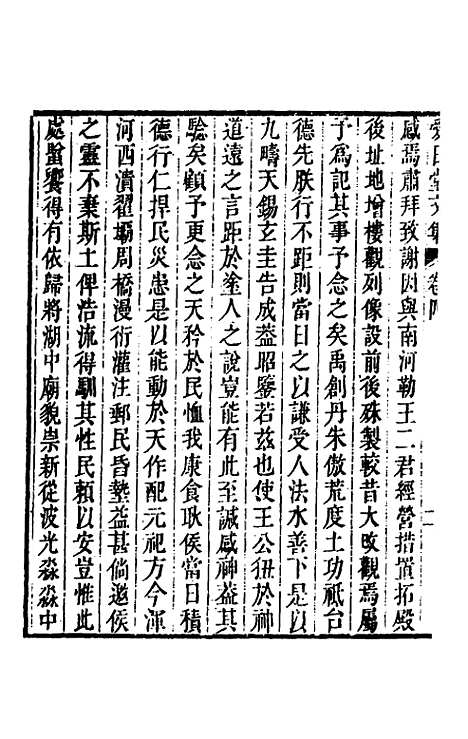 愛日堂文集 卷四 二
感焉肅拜致謝因與南河勒王二君經營措置拓殿
後址地增樓觀列像設前後殊製較昔大改觀焉屬
予爲記其事予念之矣禹創丹朱傲荒度土功祗台
德先朕行不距則當日之以謙受人法水善下是以
九疇天錫玄圭告成益昭鑒若茲也使王公狃於神
道遠之言距於塗人之說豈能有此至誠感神益其
驗矣顧予更念之天矜於民恤我康食耿侯當日積
德行仁捍民災患是以能動於天作配元祀方今渾
河西潰翟壩周橋漫衍灌注郵民昏墊益甚倘邀侯
之靈不棄斯土俾浩流得馴其性民賴以安豈惟此
處蜑饗得有依歸將湖中廟貌祟新從波光淼淼中